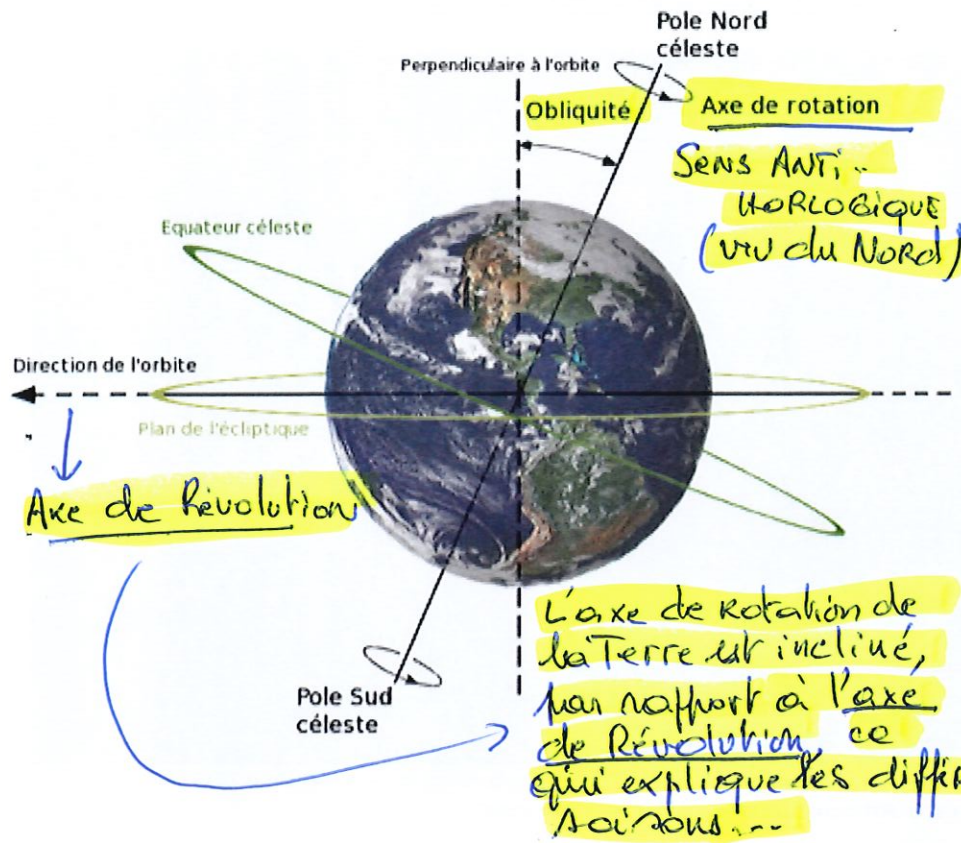 Pole Nord
céleste
Perpendiculaire à l'orbite
Obliquité
Axe de rotation
SENS ANTi-
HORLOGIQUE
(vu du NORD)
Equateur céleste
Direction de l'orbite
Plan de l'écliptique
Axe de Révolution
Pole Sud
céleste
L'axe de Rotation de
la Terre est incliné,
par rapport à l'axe
de Révolution, ce
qui explique les diffé
saisons...